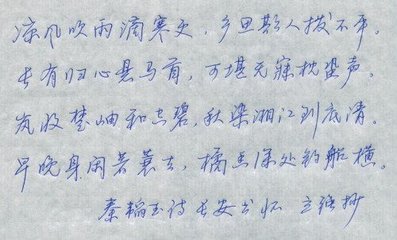 凉风吹雨滴寒更，乡思欺人拨不平。
长有归心悬马首，可堪无寐枕蛩声。
岚收楚岫和空碧，秋染湘江到底清。
早晚身闲著蓑去，橘香深处钓船横。
秦韬玉诗 长安书怀 抄